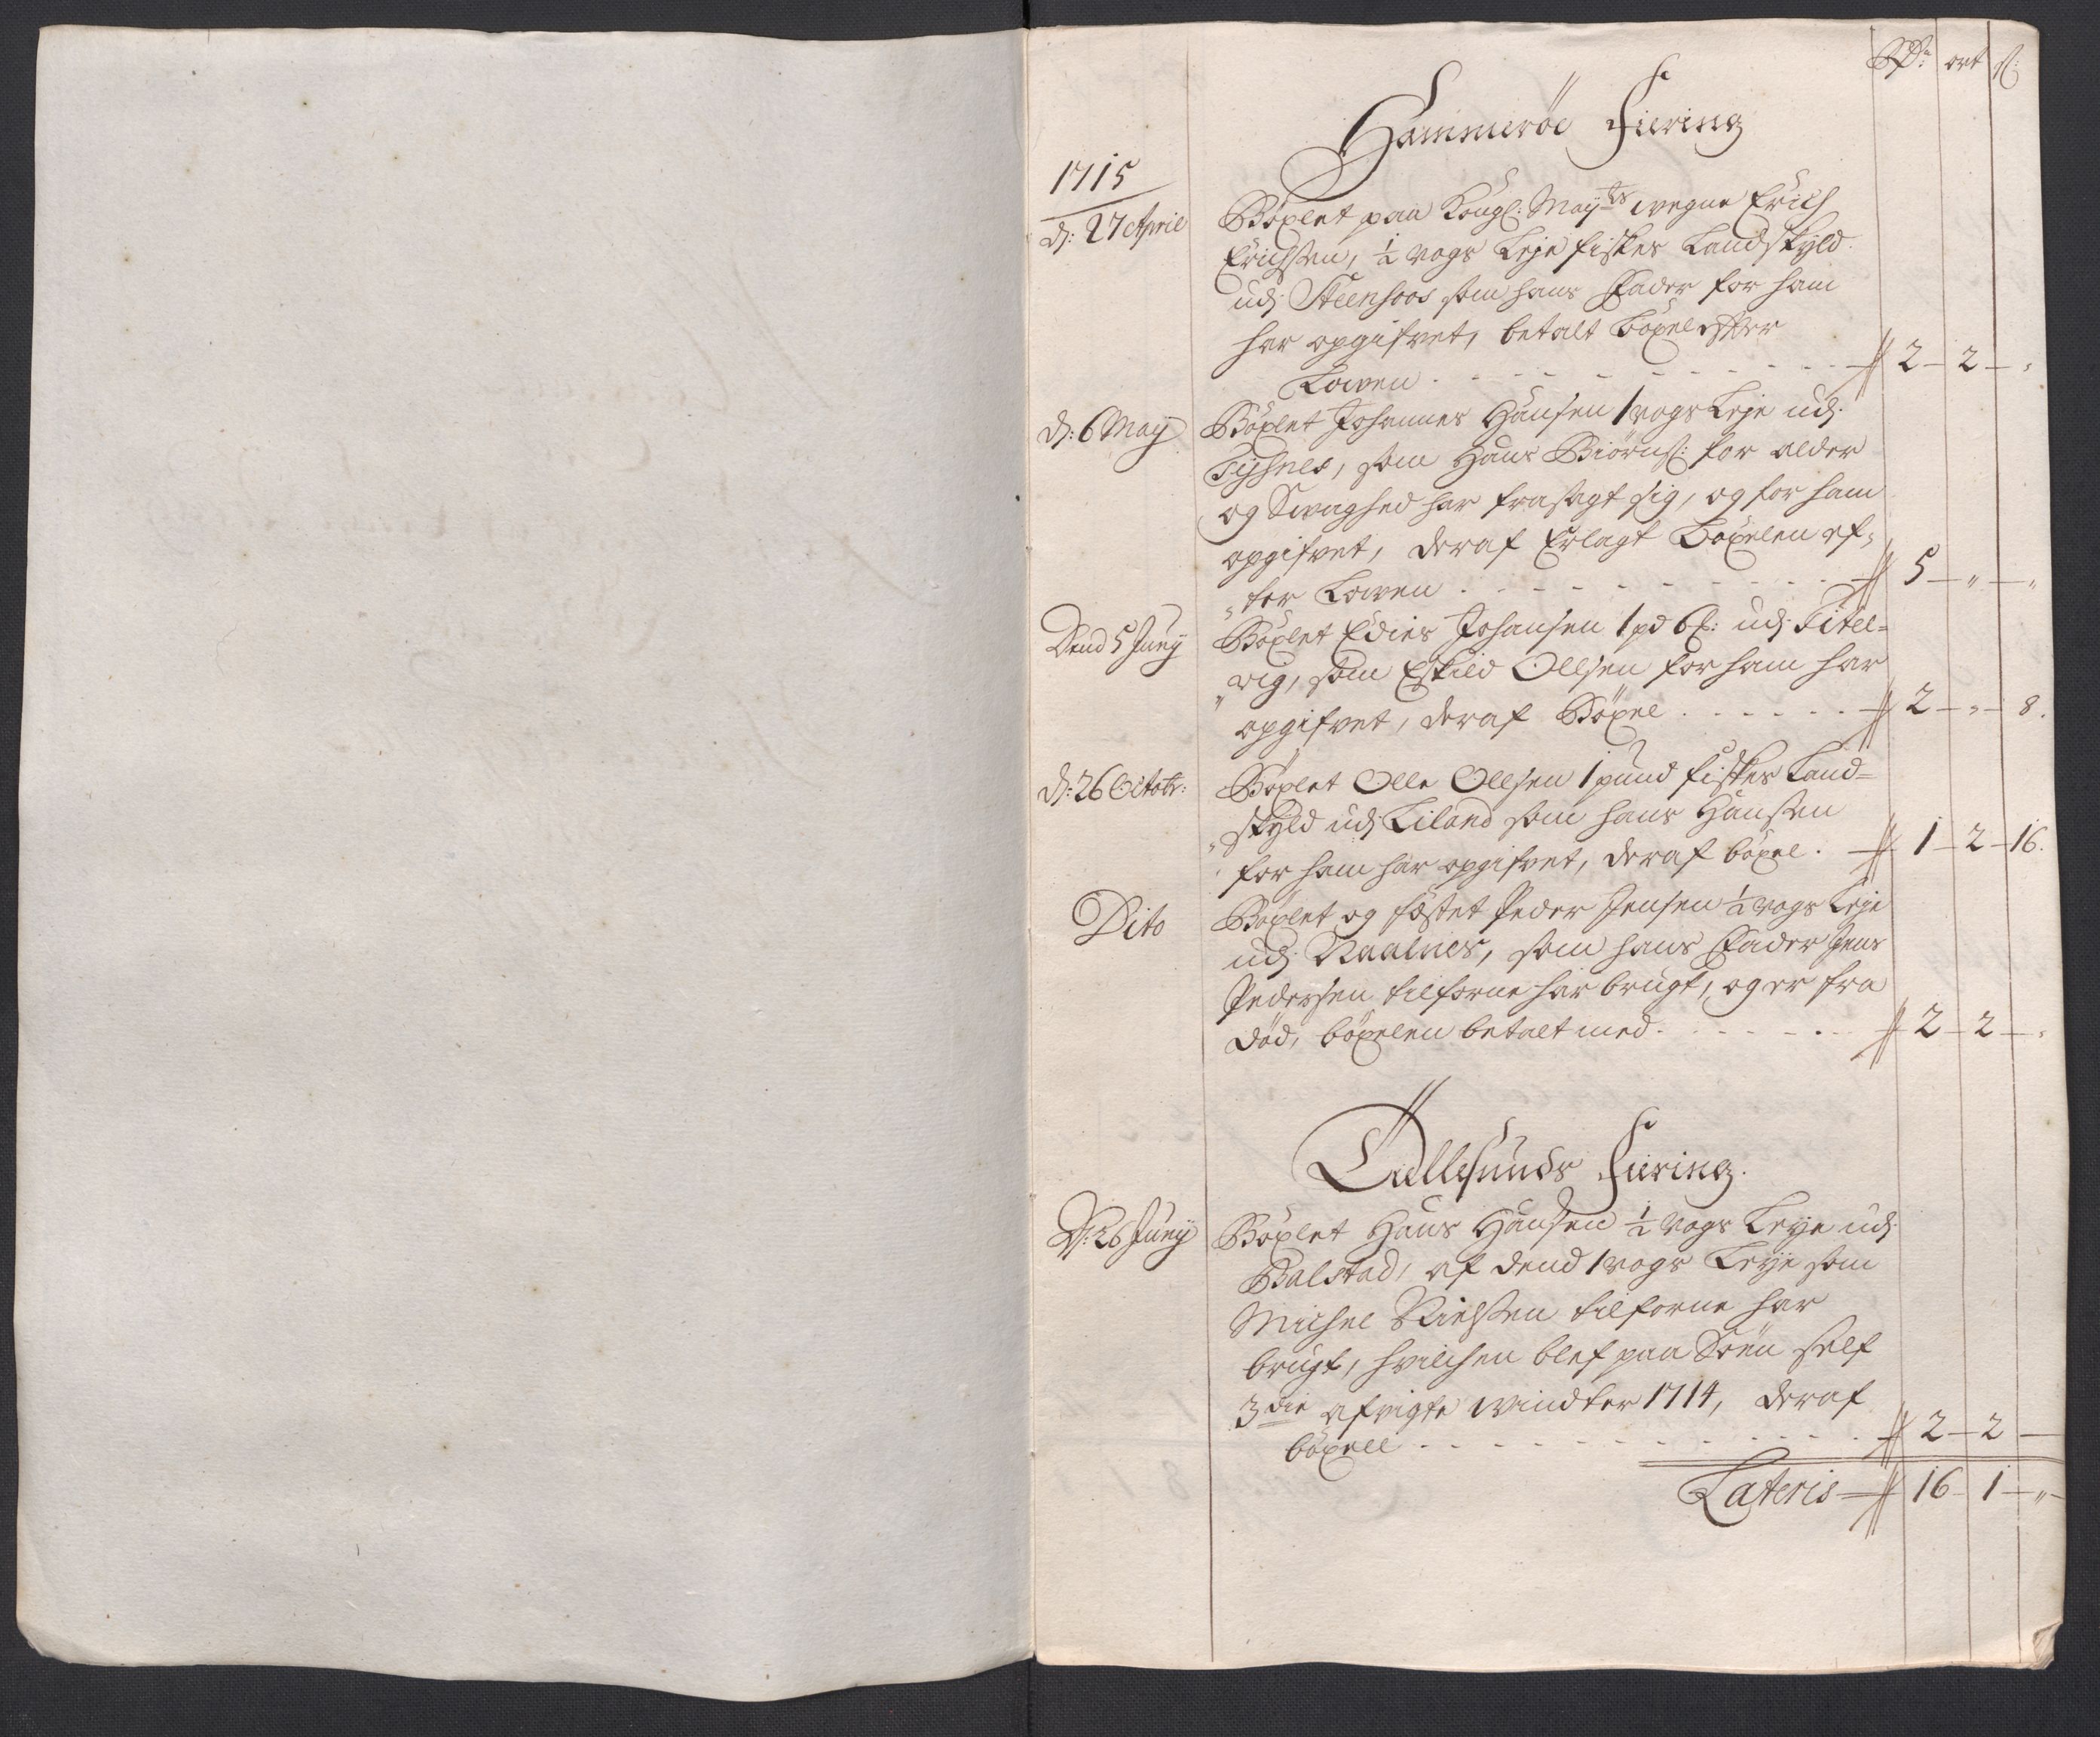 Rdr: ort s:
Hammerøe Fiering
1715
d: 27 April Böxlet paa Kongl: Mayts wegne Erich
Erichsen, ½ vogs Leje fiskes Landskyld
udj Steensoos som hans Fader for ham
har opgifvet, betalt böxel efter
Lowen 2 2 "
d: 6 May Böxlet Johannes Hansen 1 vogs Leje udj
Fijsnes, som Hans Biörns: for alder
og Swaghed har frasagt sig, og for ham
opgifvet, deraf Erlagt Böxelen ef-
ter Lowen 5 " "
Dend 5 Junij Böxlet Edies Johansen 1 pd 6 : udj Fitel-
vig, som Eskild Ollsen for ham har
opgifvet, deraf Böxel 2 " 8.
d: 26 Octobr: Böxlet Olle Ollsen 1 pund fiskes Land-
skyld udj Liland som Hans Hansen
for ham har opgifvet, deraf böxel 1 2 16.
Dito Böxlet og fæstet Peder Jensen ½ vogs Leje
udj Naalnes, som hans Fader Jens
Pedersen tilforne har brugt, og er fra
död, böxelen betalt med 2 2 "
Buxnes Fiering.
D: 26 Junij Böxlet Hans Hansen ½ vogs Leye udj
Balstad, af dend 1 vogs Leye som
Michel Nielsen tilforne har
brugt, hvilchen blef paa Söen self
3die afvigte windter 1714, deraf
böxell 2 2
Lateris 16 1 "